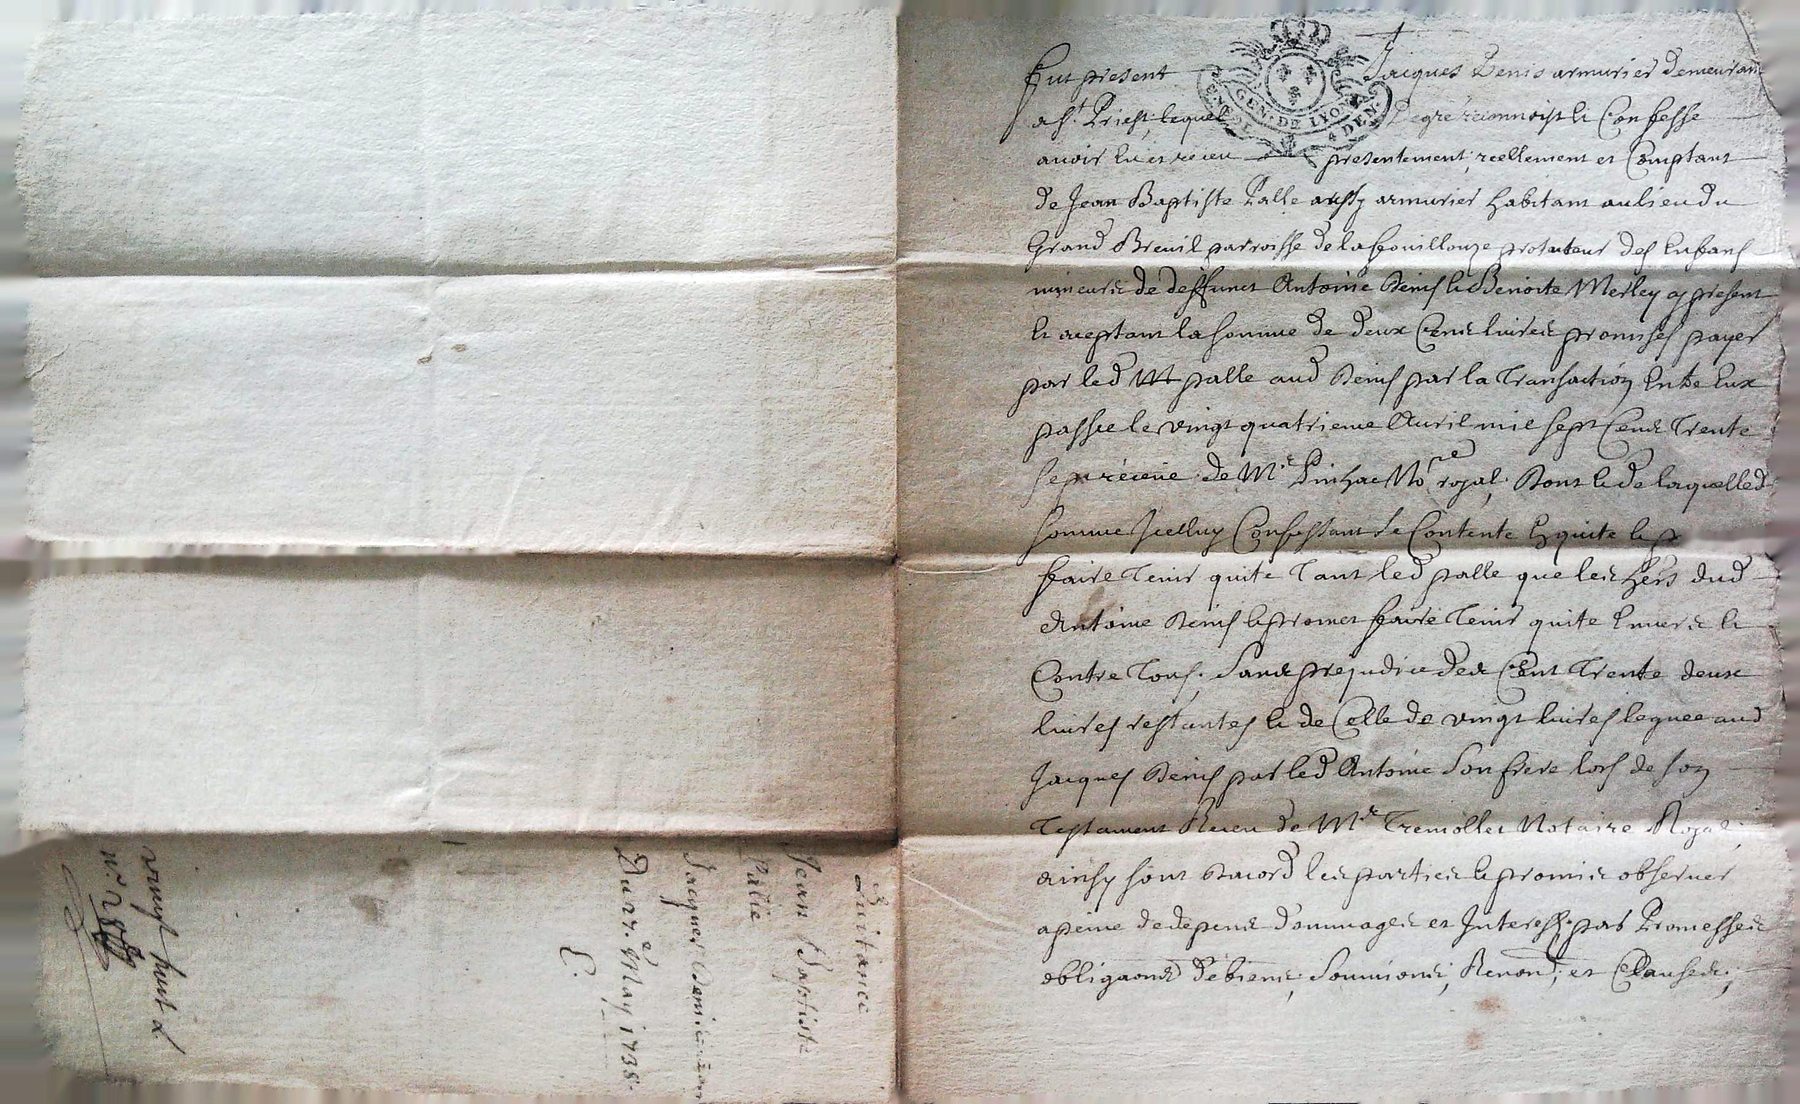 Fut present Jacques Denis armurier demeurant
a St. Priest, lequel De gré reconnoist et Confesse
avoir eu et receu presentement, reellement et Comptant
de Jean Baptiste Palle aussy armurier habitant au lieu du
Grand Breuil parroisse de la fouillouze protuteur des Enfans
mineurs de deffunct Antoine Denis et Benoite Merley cy present
et aceptant la somme de deux Cens livres promises payer
par led palle aud Denis par la Transaction Entre Eux
passée le vingt quatrieme Avril mil sept Cens Trente
sept receue de Mr royal, Dont et de laquelle d
somme Icelluy Confessant se Contente Equite et
faire Tenir quite Tant led palle que les hers dud
Antoine Denis et promet faire Tenir quite Envers et
Contre Tous. Sans prejudice des Cent Trente deux
livres restantes et de Celle de vingt livres leguee aud
Jacques Denis par led Antoine Son frere lors de son
Testament Receu de Mr Tremollet Notaire Royal
ainsy sont Dacord les parties et promis observer
a peine de depens d'ommages et Interests par Promesses
obligaons de biens, Soumions, Renons, et Clauses,
GEN. DE LYON
4 DEN.
Quitance
Jean Baptiste
Palle
Jacques Denis
Du 27.e May 1738.
vingt huit